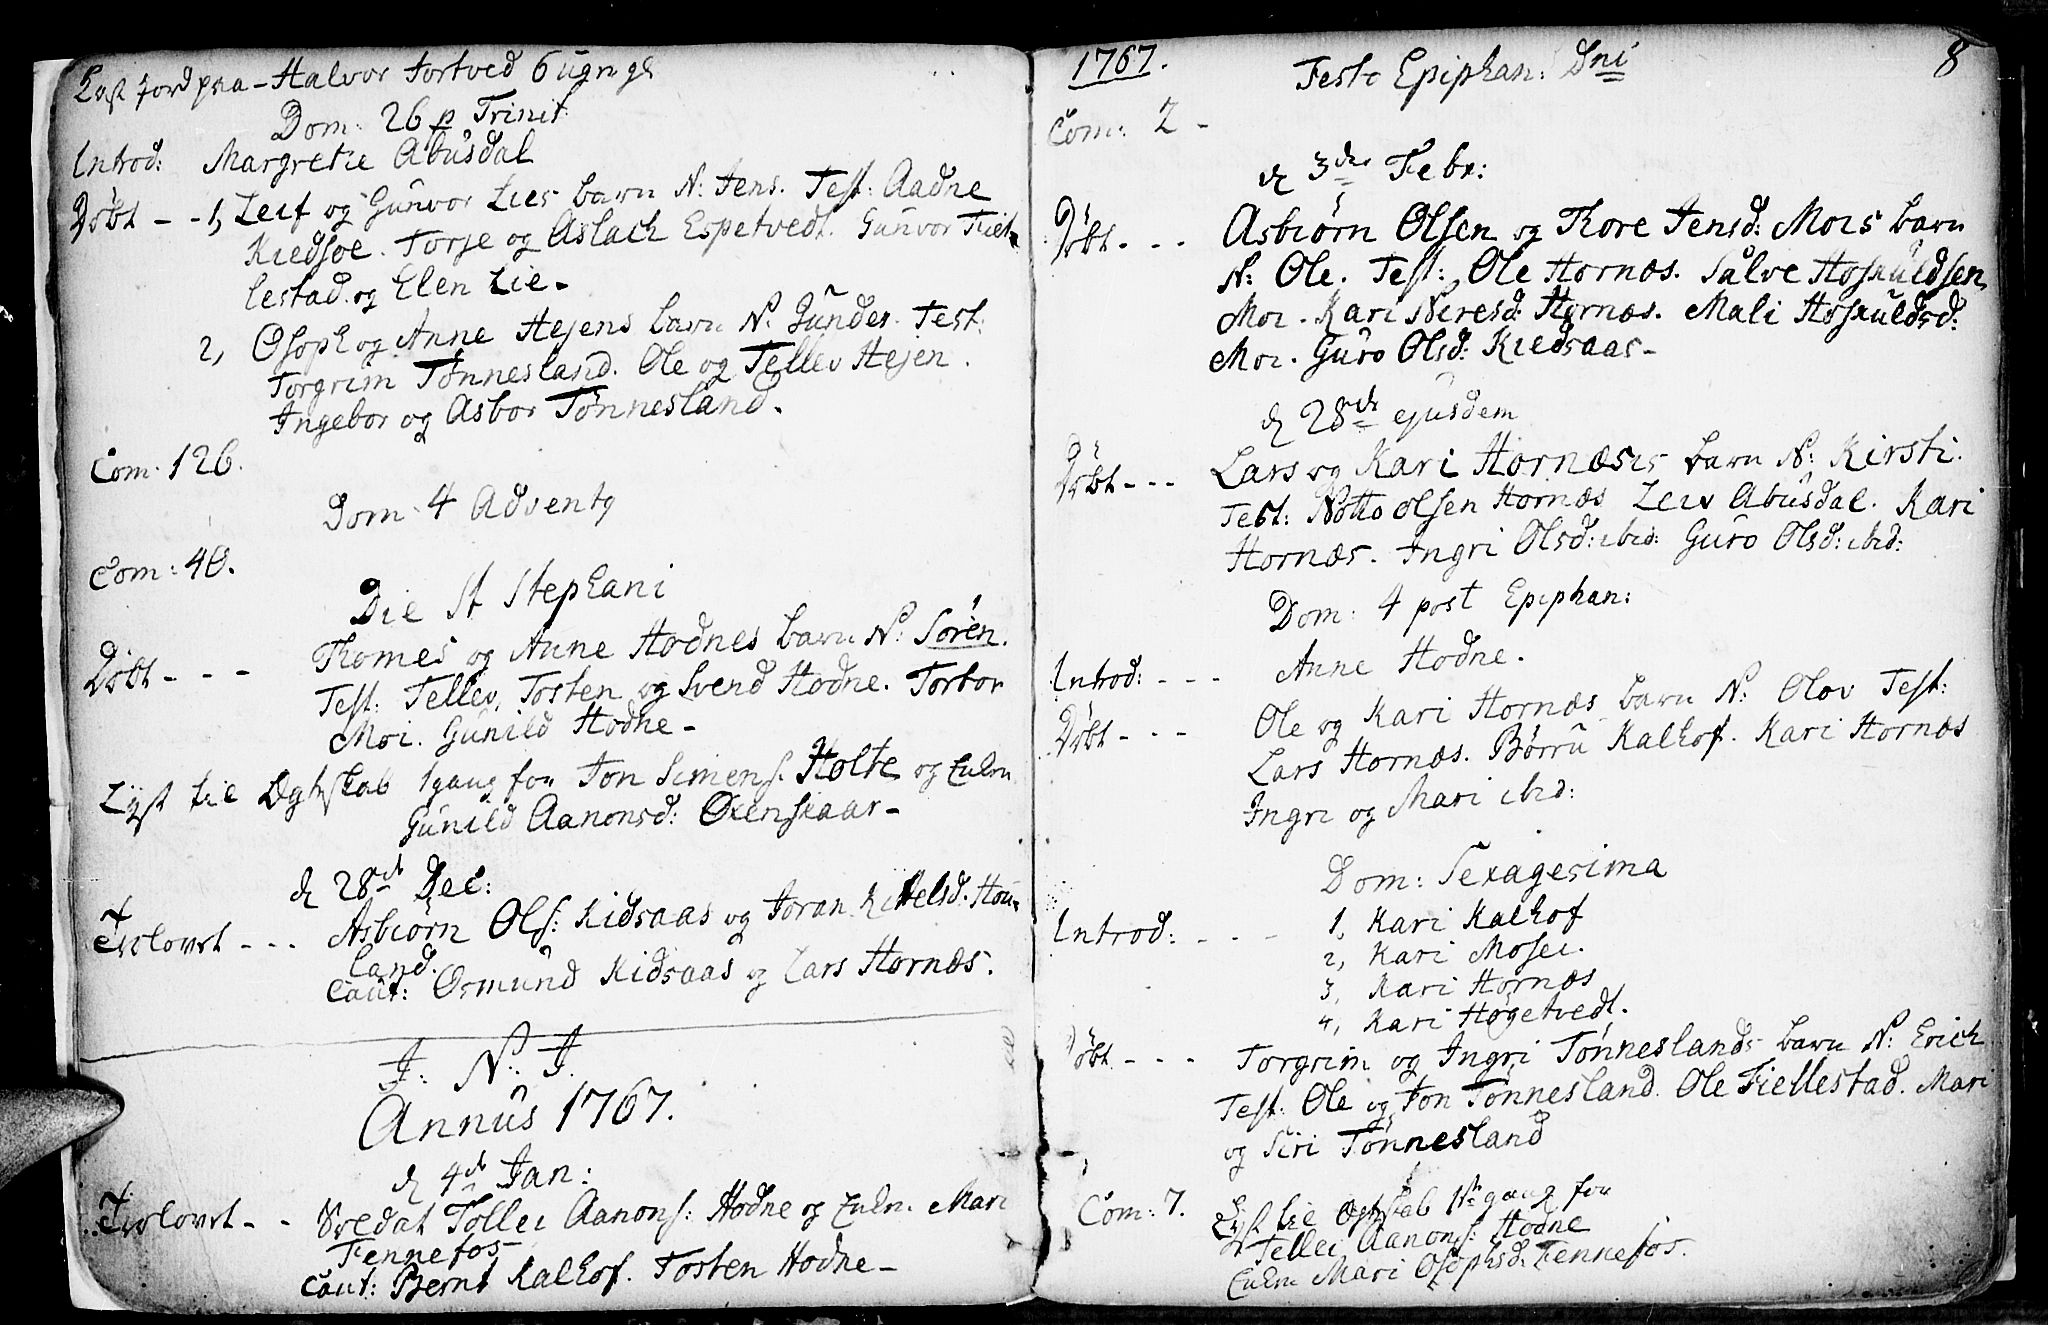 Kast jord paa - Halvor Tortved 6 ug gl
Dom: 26 p Trinit
Introd: Margrethe Abusdal
Døbt - - 1, Leif og Gunvor Lies barn N: Jens. Test: Aadne
Kiedsoe. Torje og Aslach Espetvedt. Gunvor Fiel-
lestad og Elen Lie -
2, Osoph og Anne Hejens barn N: Gunder. Test:
Torgrim Tønnesland. Ole og Tellev Hejen.
Ingebor og Asbor Tønnesland.
Com. 126.
Dom 4 Advent
Com: 40.
Die St Stephani
Døbt - - - Thomes og Anne Hodnes barn N: Søren.
Test: Tellev, Tosten og Svend Hodne. Torbor
Moi. Gunild Hodne -
Lyst til Ægtskab 1gang for Jon Simens: Holte og
Gunild Aanonsd: Oxenskaar -
d 28de Dec:
Trolovet - - - Asbiørn Ols: Kidsaas og Joran Kittelsd. Hou-
land.
Caut: Osmund Kidsaas og Lars Hornæs.
J: N: J.
Annus 1767.
d 4de Jan:
Trolovet - - Soldat Tollei Aanons: Hodne og Mari
Fennefos
Caut: Bernt Kalhof. Tosten Hodne -
1767. Festo Epiphan: Dni 8
Com: 2 -
d 3die Febr:
Døbt - - - Asbiørn Olsen og Thore Jensd: Mois barn
N: Ole. Test: Ole Hornæs. Salve Hoskuldsen
Moi. Kari Neresd: Hornæs. Mali Hoskuldsd:
Moi. Guro Olsd: Kiedsaas -
d 28de ejusdem
Døbt - - - Lars og Kari Hornæsis barn N: Kirsti.
Test: Notto Olsen Hornæs Leiv Abusdal. Kari
Hornæs. Ingri Olsd: ibid: Guro Olsd: ibid:
Dom: 4 post Epiphan:
Introd: - - - Anne Hodne.
Døbt - - - Ole og Kari Hornæs barn N: Olov Test:
Lars Hornæs. Børru Kalhof. Kari Hornæs
Ingri og Mari ibid:
Dom: Sexagesima
Introd: - - - 1, Kari Kalhof
2, Kari Mosei.
3, Kari Hornæs
4, Kari Høgetvedt.
Døbt - - - Torgrim og Ingri Tønneslands barn N: Erich
Test: Ole og Jon Tønnesland. Ole Fiellestad. Mari
og Siri Tønnesland
Com: 7. Lyst til Ægtskab 1ste gang for
Tellei Aanons: Hodne
Mari Osophsd: Fennefos.